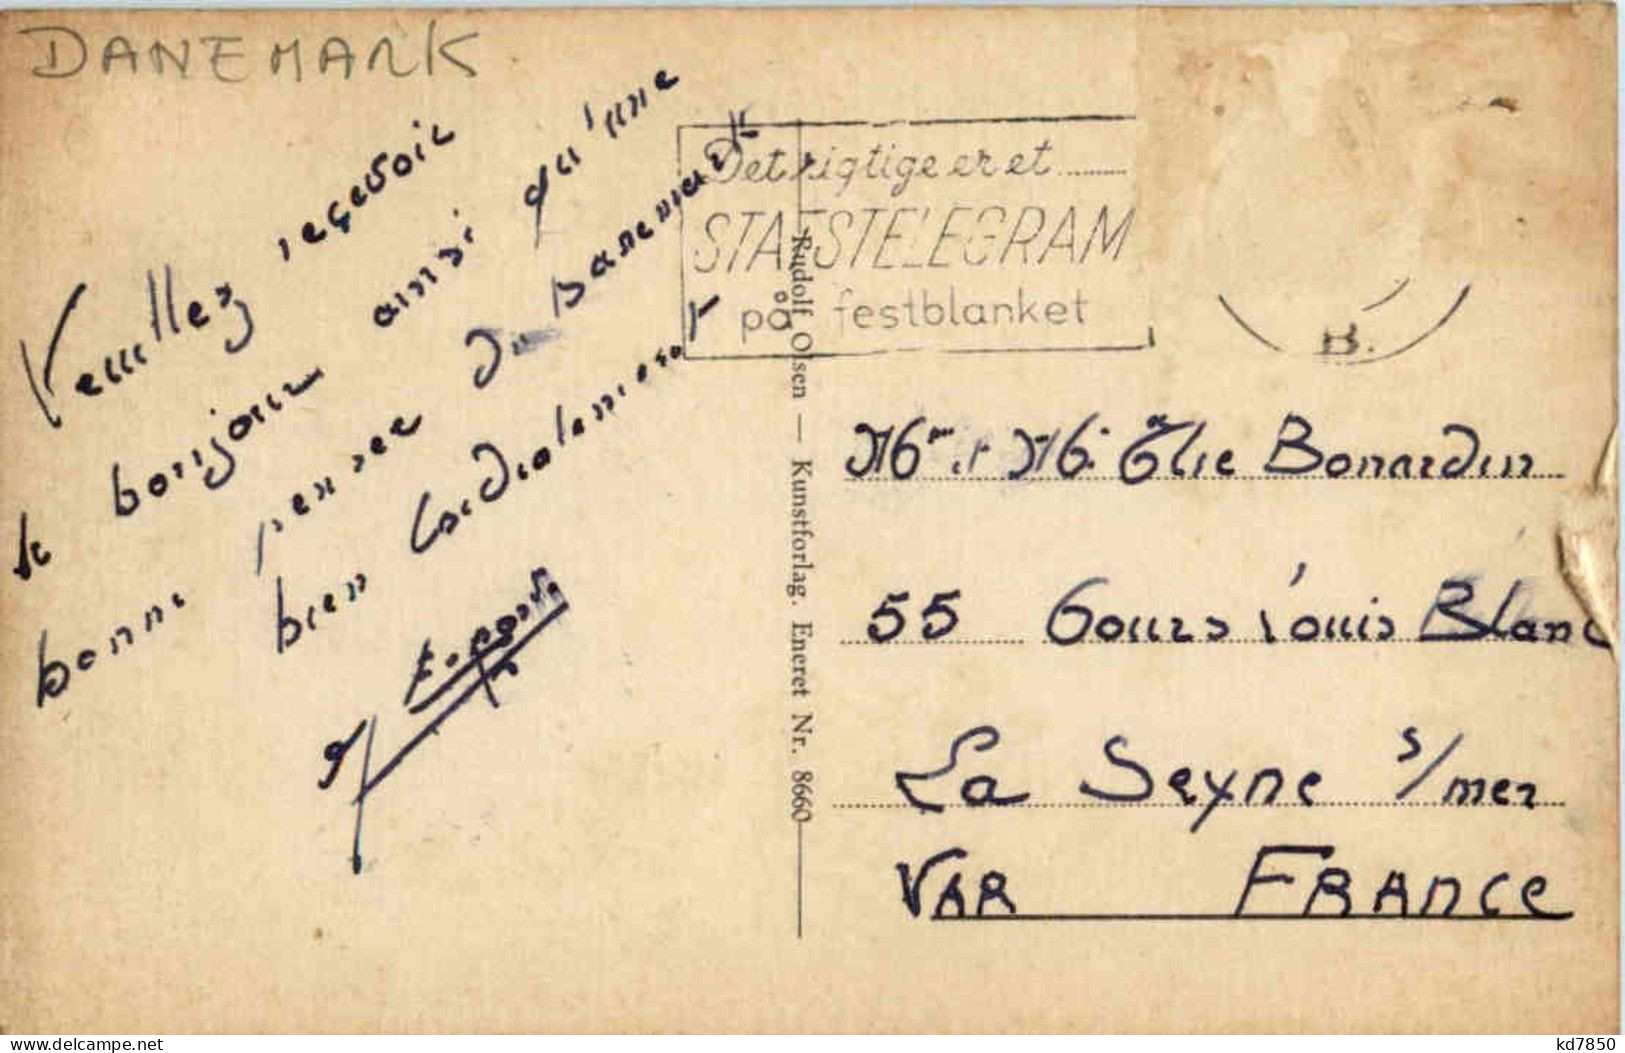 DANEMARK
Veuillez reçevoir
le bonjour ainsi qu'une
bonne pensée du Danemark
bien Cordialement
Det rigtige er et ........
STATSTELEGRAM
på festblanket
B.
Rudolf Olsen — Kunstforlag. Eneret Nr. 8660
Mr et Mme Élie Bonardin
55 Cours Louis Blanc
La Seyne s/mer
VAR FRANCE
www.delcampe.net
kd7850